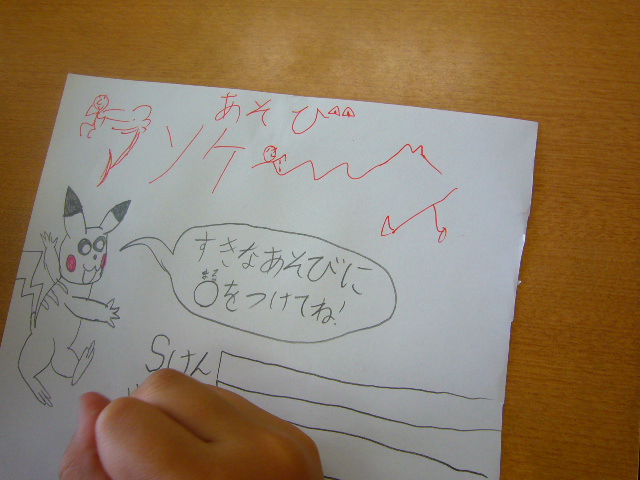 あそび
アンケート
すきなあそびに
まる
○をつけてね!
Sけん